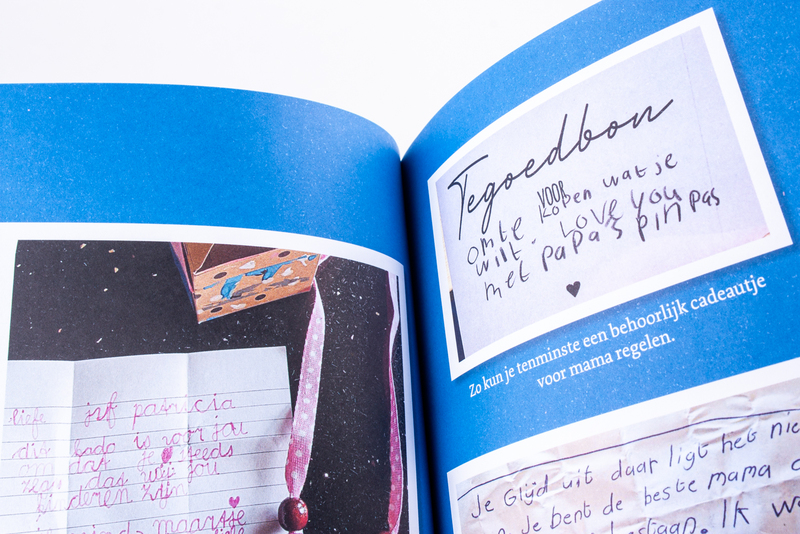 liefe juf patricia
kado is voor jou
om dat je
das wij jou
kinderen zijn
maartje
Tegoedbon
VOOR
om te kopen wat je
wilt. Love you
met papa's pinpas
♥
Zo kun je tenminste een behoorlijk cadeautje
voor mama regelen.
Je Glijd uit daar ligt het nie
Je bent de beste mama
Ik